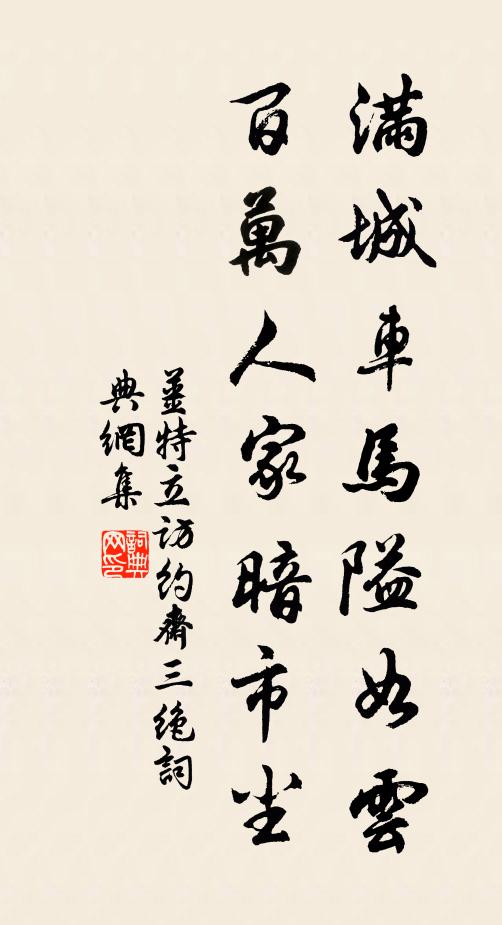 滿城車馬隘如雲
百萬人家暗市塵
姜特立訪約齋三絶詞
典網集
詞典
网印